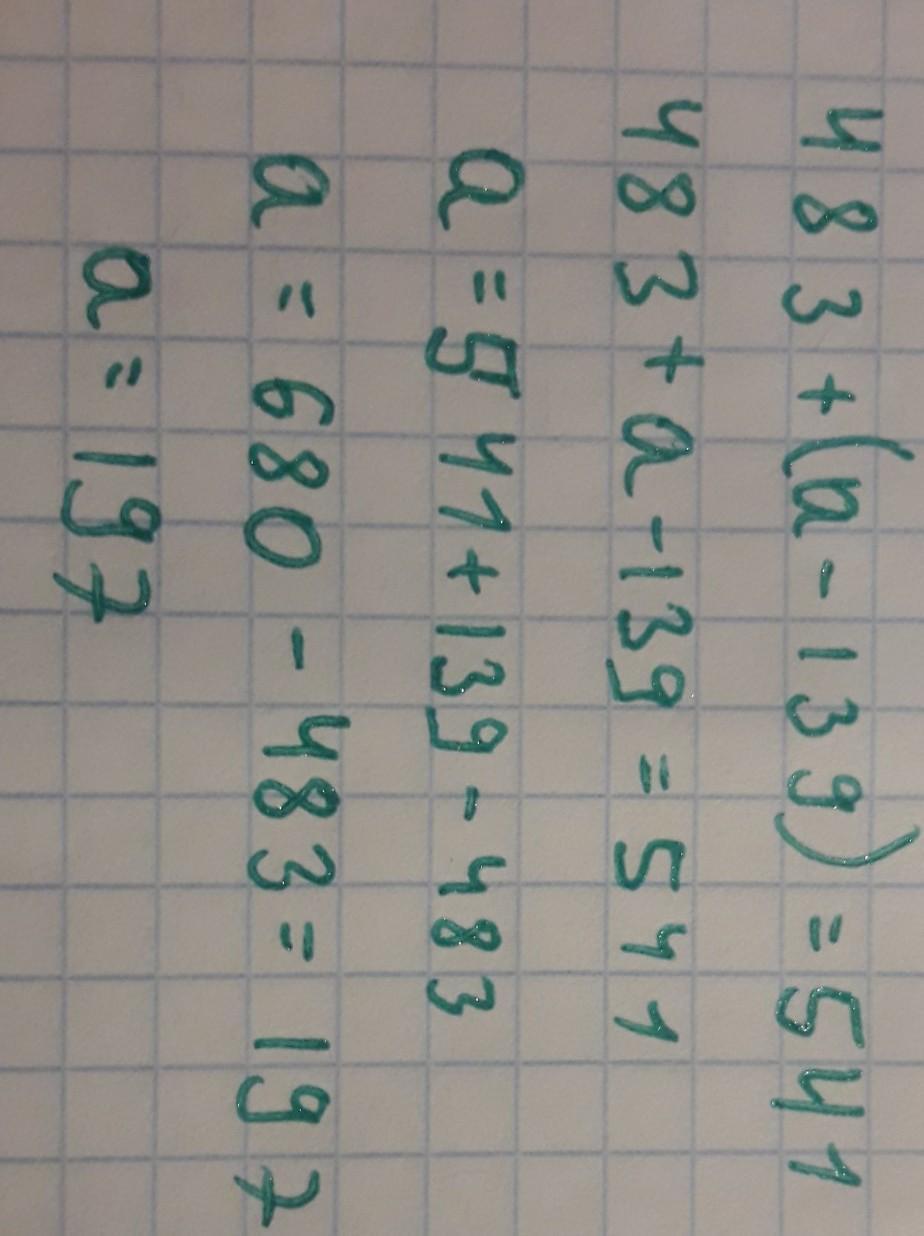 483+(a-139)=541
483+a-139=541
a=541+139-483
a=680-483=197
a=197